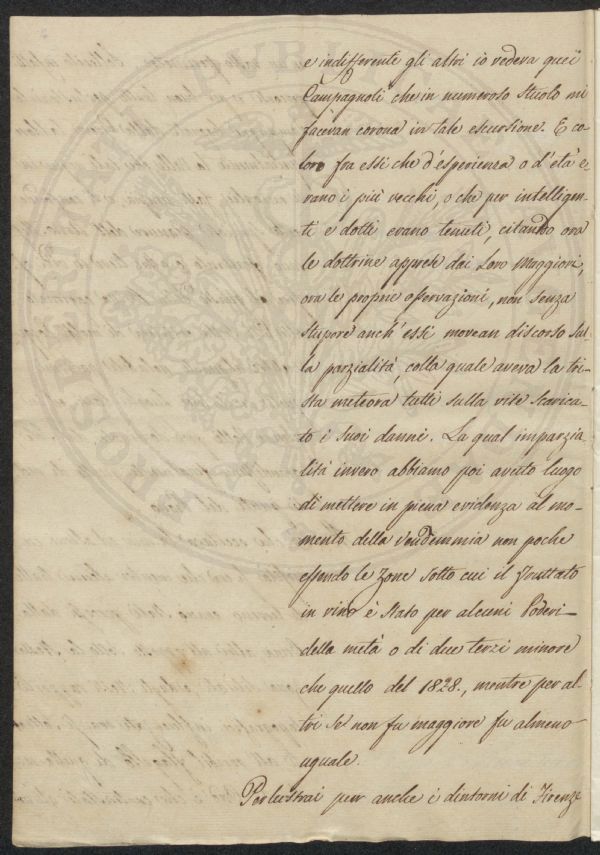 e indifferente gli altri io vedeva quei
Campagnoli che in numeroso Stuolo mi
facevan corona in tale escursione. E co-
loro fra essi che d'esperienza o d'età e-
rano i più vecchi, o che per intelligen-
ti e dotti erano tenuti, citando ora
le dottrine apprese dai Loro Maggiori,
ora le proprie osservazioni, non senza
stupore anch'essi movean discorso sul-
la parzialità, colla quale aveva la tri-
sta meteora tutti sulla vite scarica-
to i suoi danni. La qual imparzia-
lità invero abbiamo poi avuto luogo
di mettere in piena evidenza al mo-
mento della Vendemmia non poche
essendo le Zone sotto cui il fruttato
in vino è stato per alcuni Poderi
della metà o di due terzi minore
che quello del 1828., mentre per al-
tri se non fu maggiore fu almeno
uguale.
Perlustrai pur anche i dintorni di Firenze